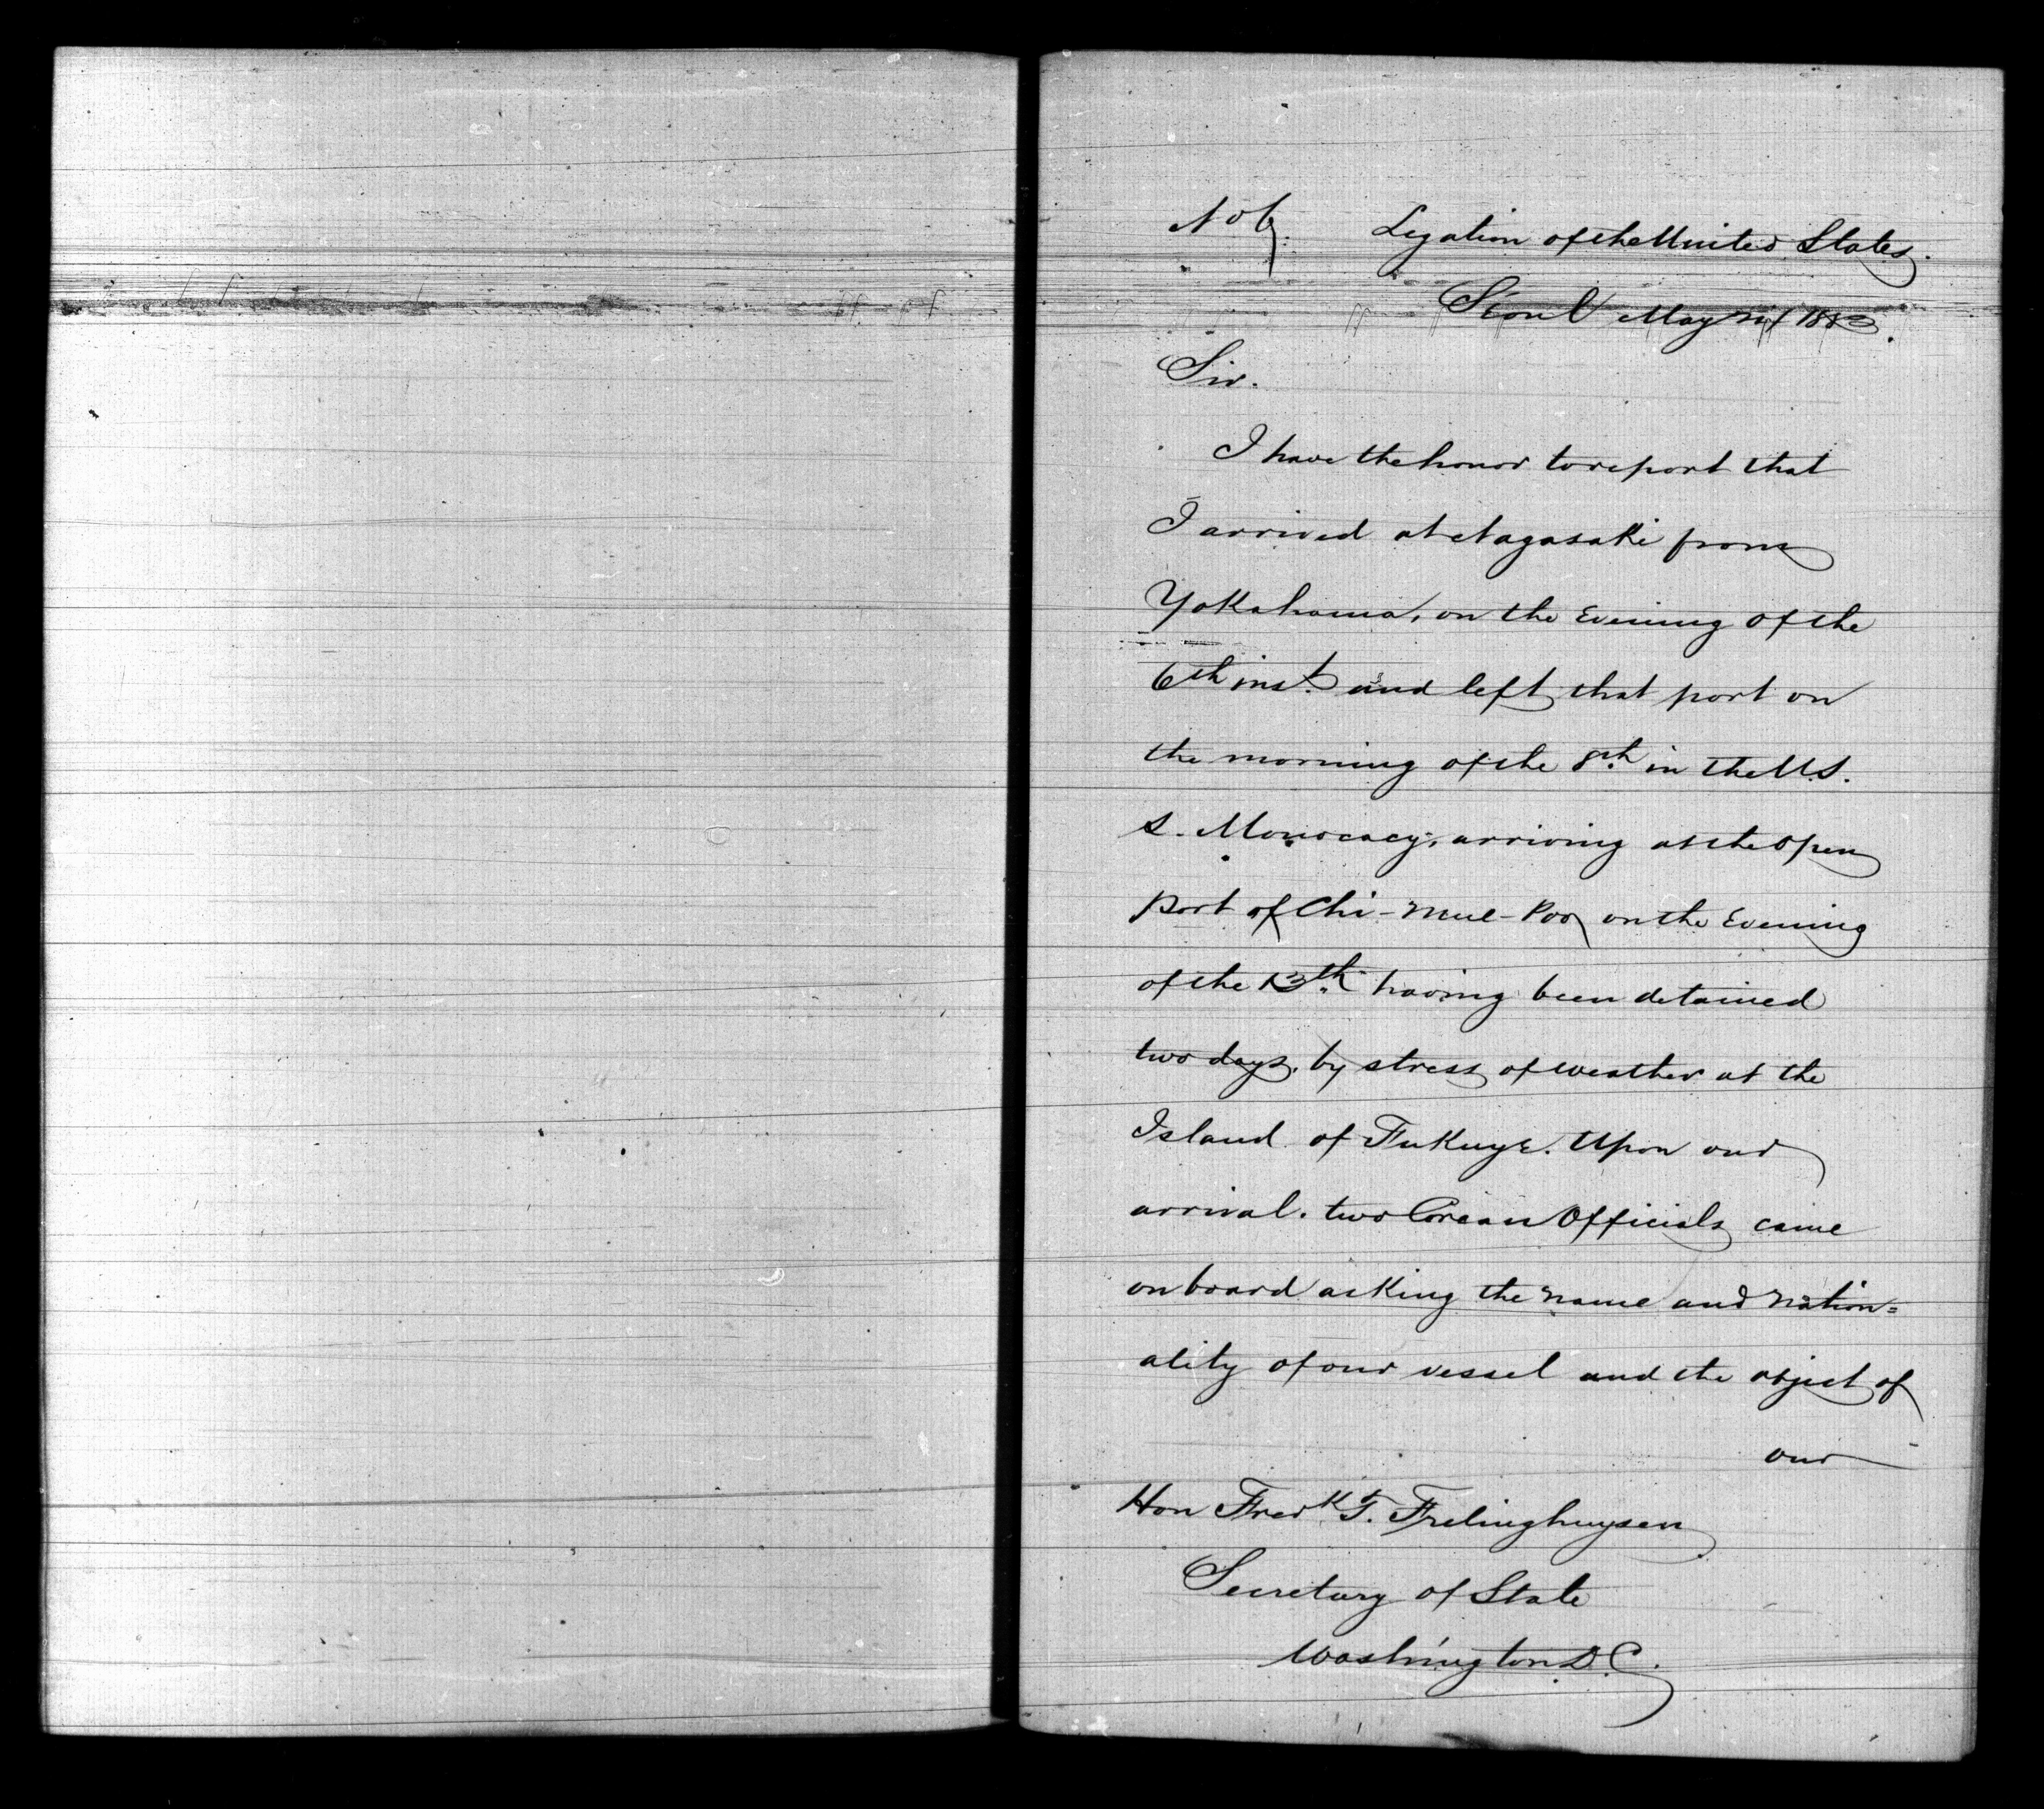 No 6. Legation of the United States.
Séoul May 1883.
Sir.
I have the honor to report that
I arrived at Nagasaki from
Yokahama, on the Evening of the
6th inst. and left that port on
the morning of the 8th in the U.S.
S. Monocacy, arriving at the open
port of Chi-mul-Poo, on the Evening
of the 13th having been detained
two days, by stress of weather at the
Island of Fukuye. Upon our
arrival. two Corean Officials came
on board asking the name and nation=
ality of our vessel and the object of
our
Hon Fredk T. Frelinghuysen
Secretary of State
Washington D.C.